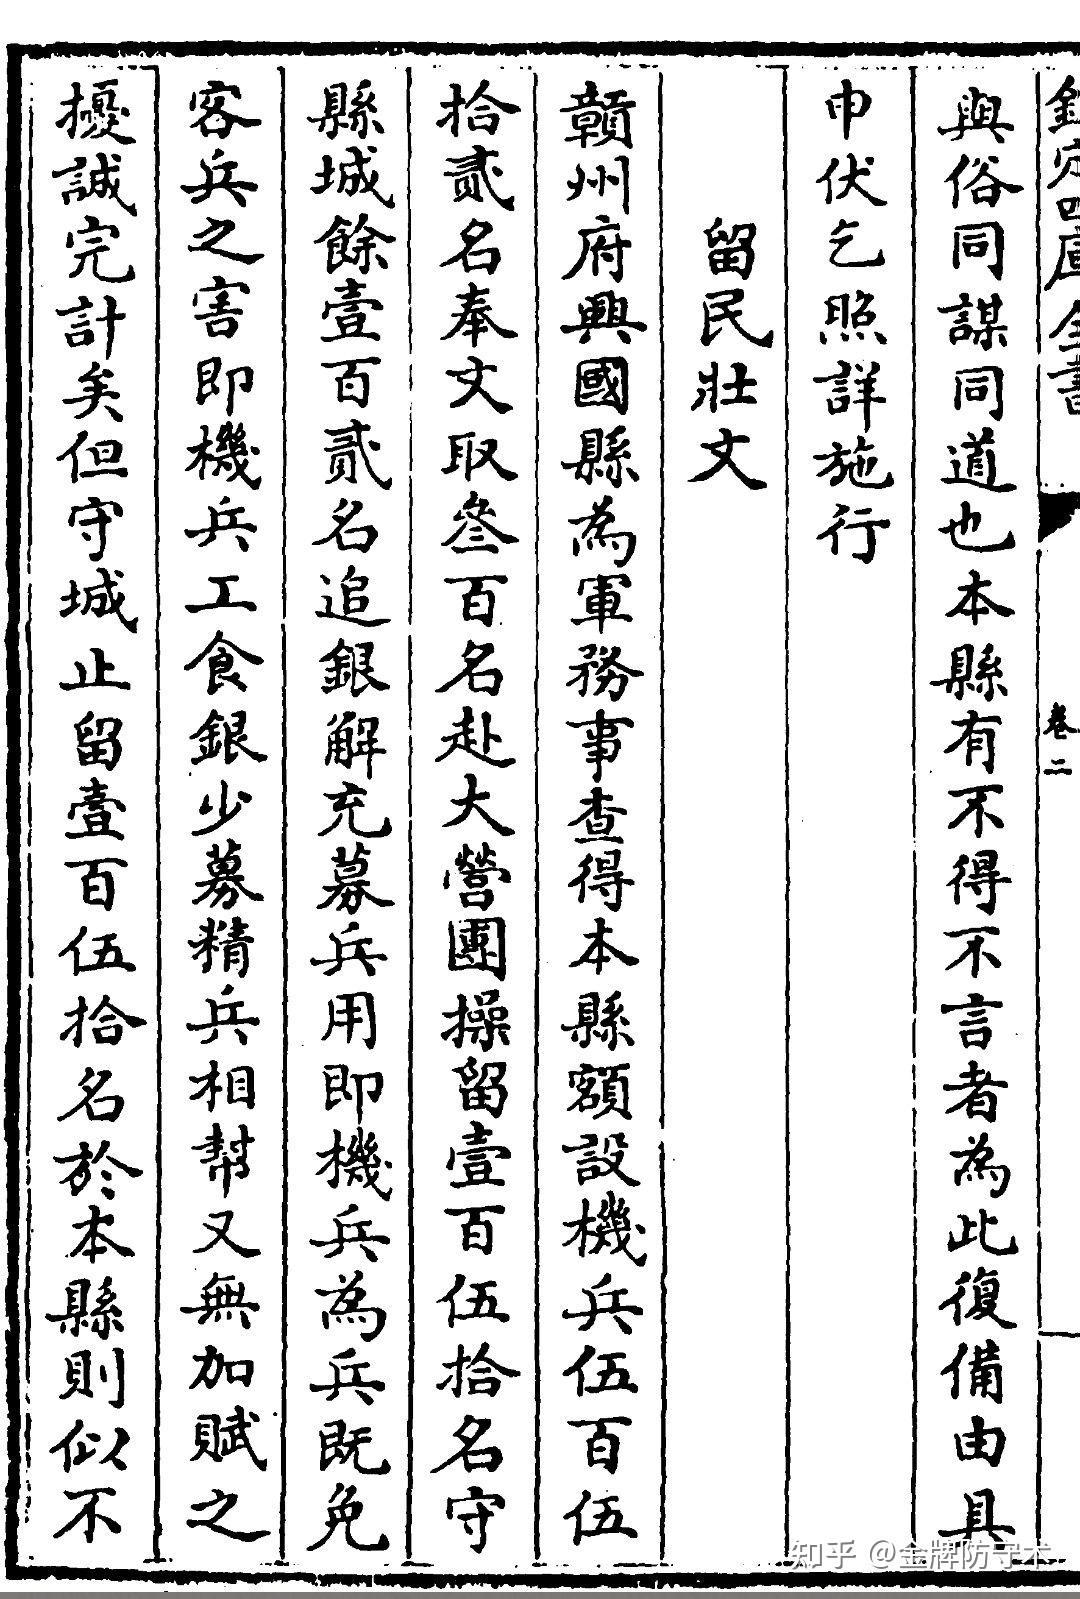 欽定四庫全書
卷二
與俗同謀同道也本縣有不得不言者為此復備由具
申伏乞照詳施行
留民壯文
贛州府興國縣為軍務事查得本縣額設機兵伍百伍
拾貳名奉文取叄百名赴大營團操留壹百伍拾名守
縣城餘壹百貳名追銀解充募兵用即機兵為兵既免
客兵之害即機兵工食銀少募精兵相幫又無加賦之
擾誠完計矣但守城止留壹百伍拾名於本縣則似不
知乎 @金牌防守术